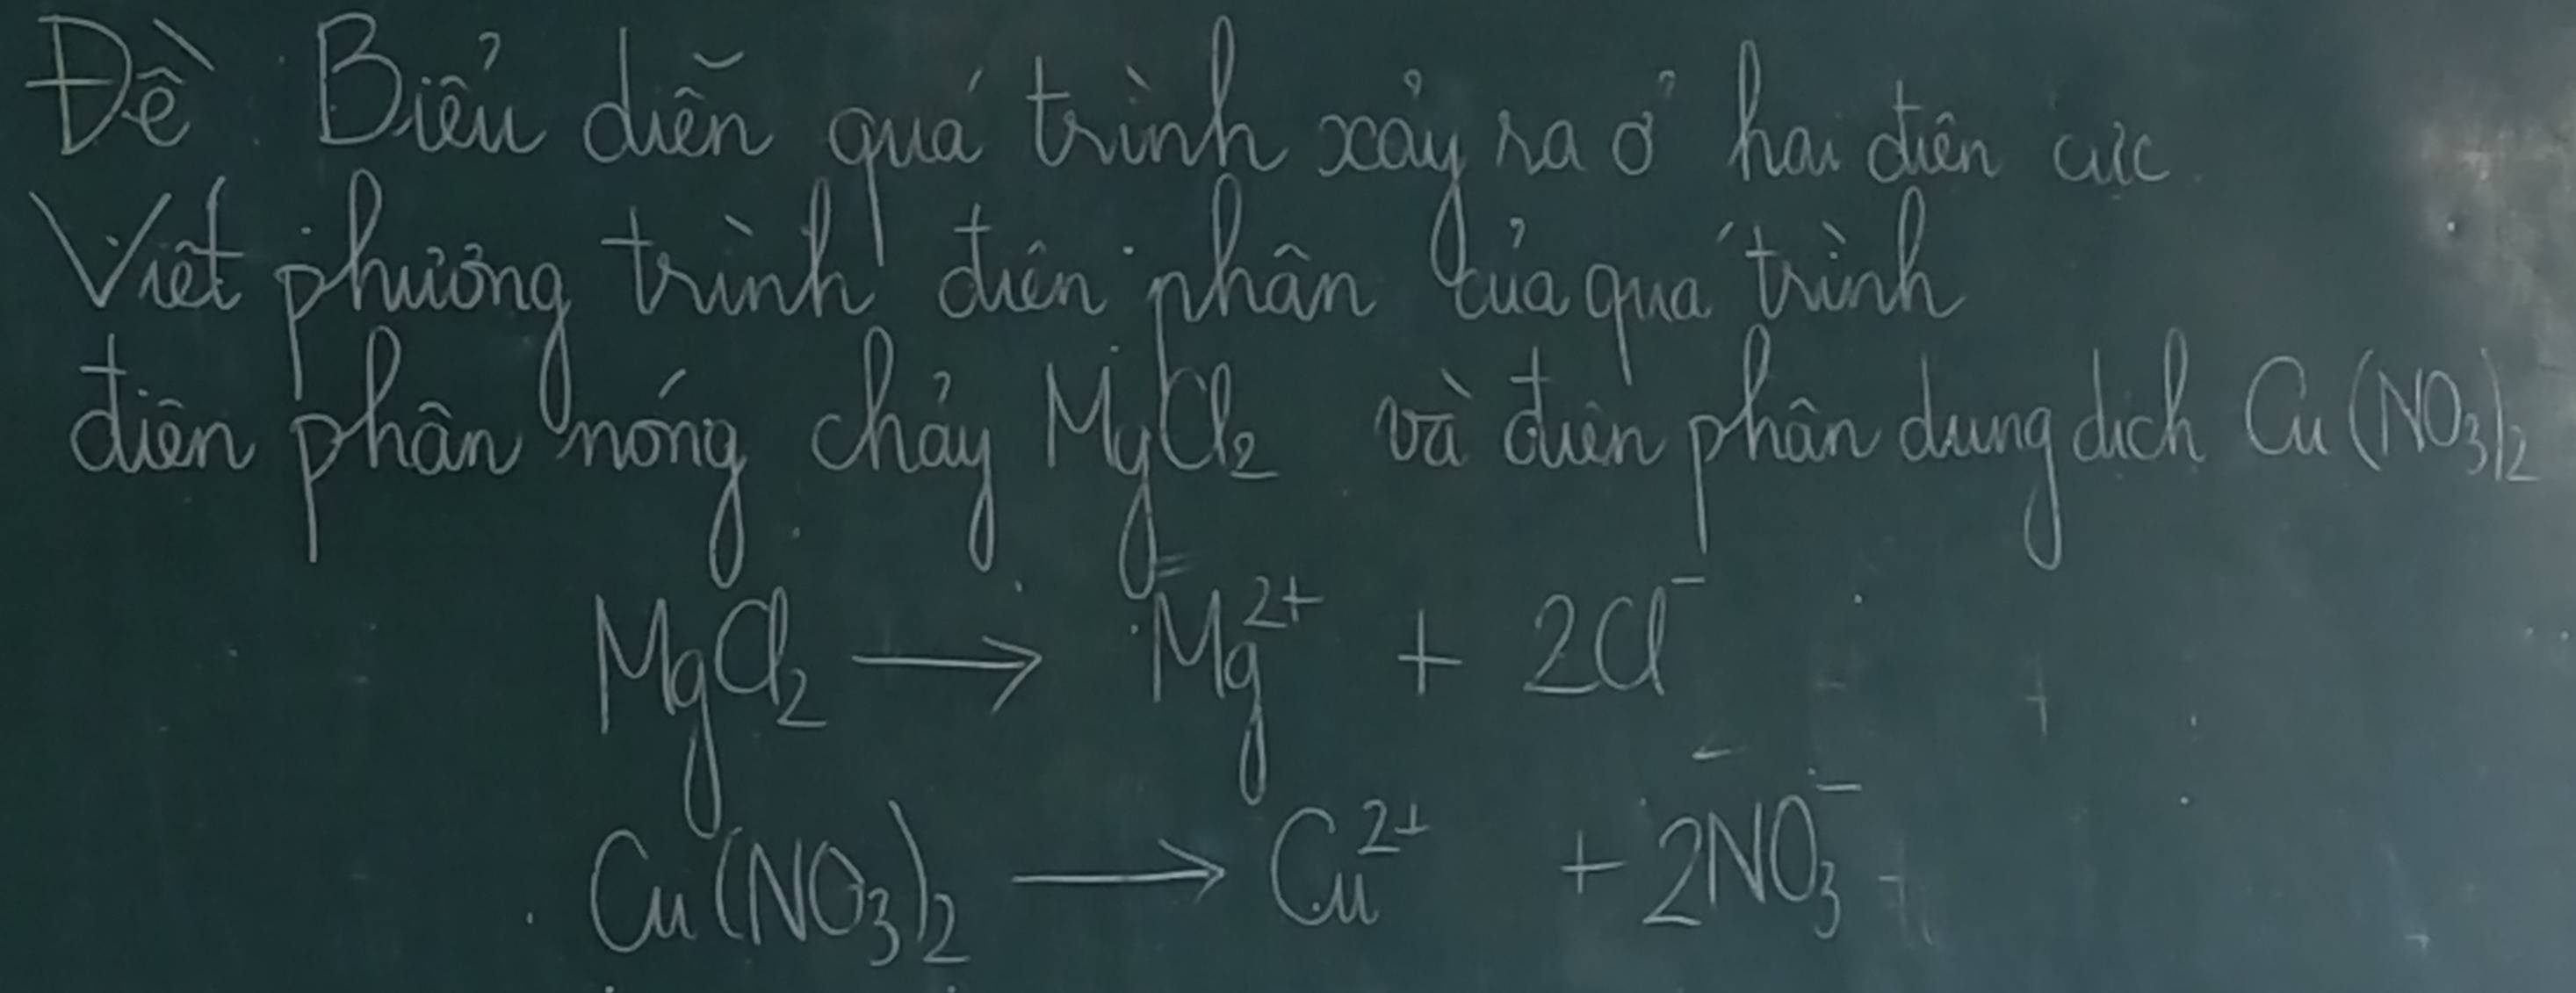 Đề Biểu diễn quá trình xảy ra ở hai điện cực
Viết phương trình điện phân của quá trình
điện phân nóng chảy MgCl₂ và điện phân dung dịch Cu(NO₃)₂
MgCl₂ → Mg²⁺ + 2Cl⁻
Cu(NO₃)₂ → Cu²⁺ + 2NO₃⁻